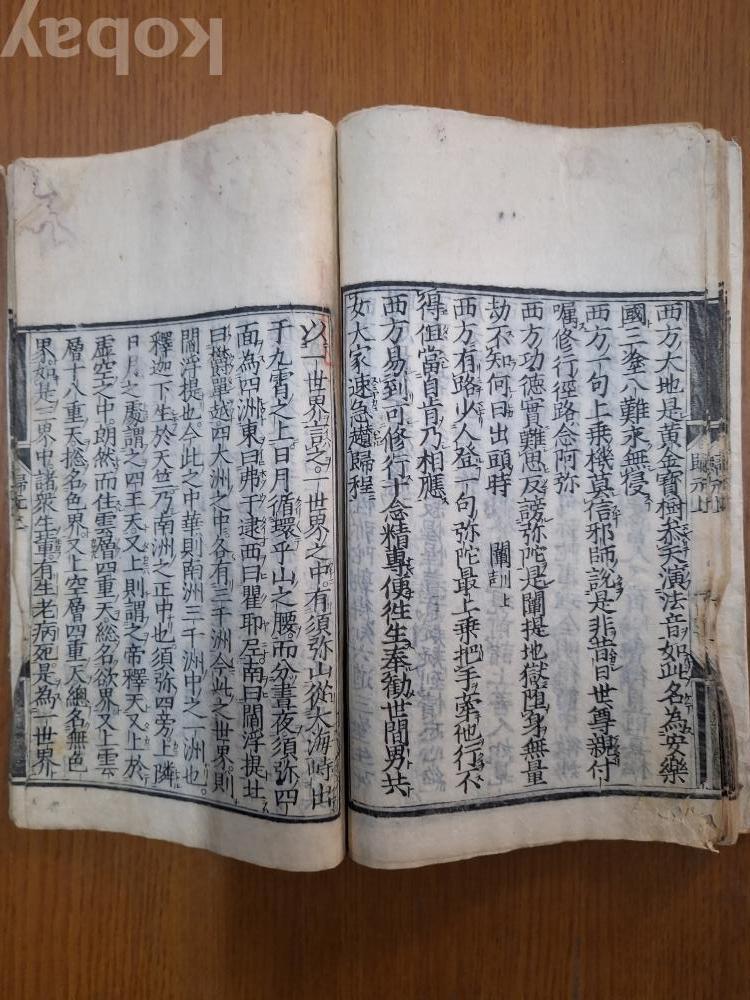 西方大地是黃金寶樹參天演法音如此名為安樂
國三塗八難永無侵
西方一句上乗機莫信邪師說是非昔日世尊親付
囑修行徑路念阿弥
西方功德實難思反謗弥陀是闡提地獄墮身無量
劫不知何日出頭時 闡訓上
西方有路少人登一句弥陀最上乗把手牽他行不
得但當自肯乃相應
西方易到可修行十念精專便徃生奉勸世間男共
女大家速急趲歸程
以一世界言之一世界之中有須弥山從大海峙出
于九霄之上日月循環乎山之腰而分晝夜須弥四
面為四洲東曰弗于逮西曰瞿耶尼南曰閻浮提北
曰欝單越四大洲之中各有三千洲今此之世界則
閻浮提也今此之中華則南洲三千洲中之一洲也
釋迦下生於天竺乃南洲之正中也須弥四旁上隣
日月之處謂之四王天又上則謂之帝釋天又上於
虛空之中朗然而住雲層四重天総名欲界又上雲
層十八重天総名色界又上空層四重天總名無色
界如是三界中諸衆生軰有生老病死是為一世界
kobay